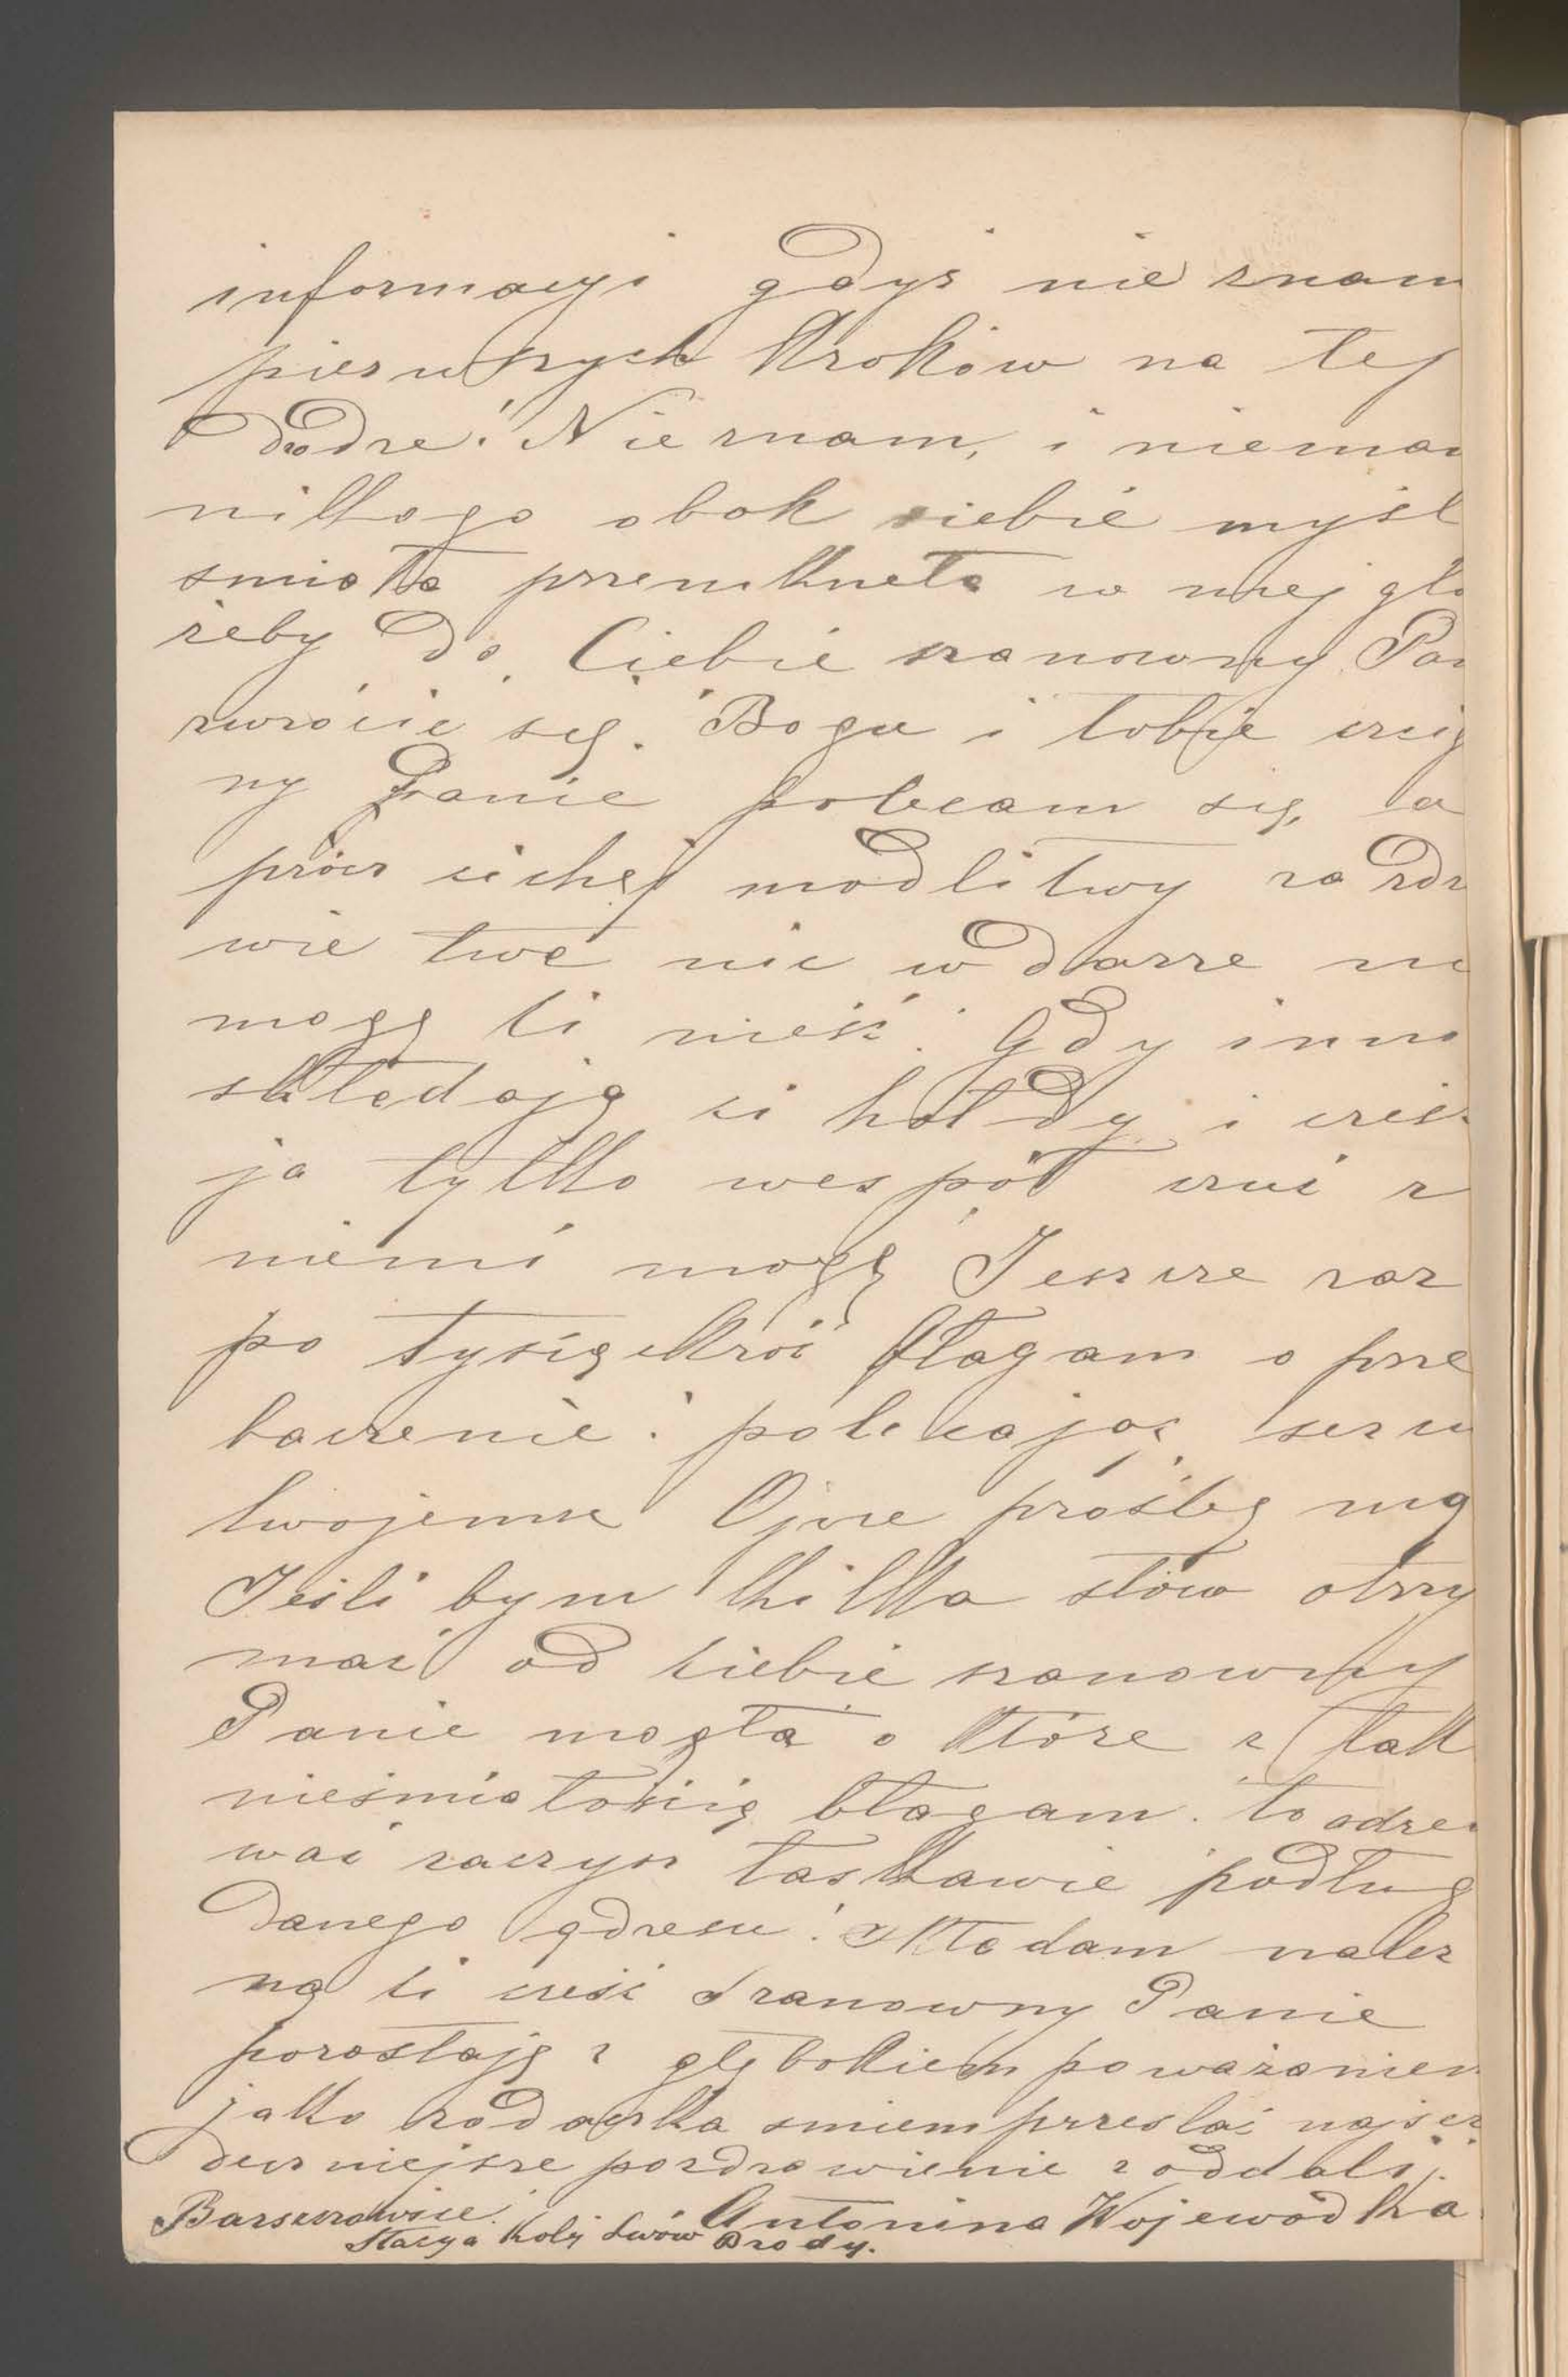 informacyi gdyz nie znam
pierwszych kroków na tej
drodze! Nie znam, i niemam
nikogo obok siebie myśl
smiała przemknęła w mej gło
żeby do Ciebie szanowny Pan
zwrócić się. Bogu i tobie czcig
ny Panie polecam się, a
prócz cichej modlitwy za zdr
wie twe nic w darze ni
mogę ci nieść. Gdy inni
składają ci hołdy i cześć
ja tylko wespół czuć z
niemi mogę Jeszcze raz
po tysiąckroć błagam o prze
baczenie. polecając sercu
twojemu Ojcze prośbę mą
Jeśli bym kilka słów otrzy
mać od ciebie szanowny
Panie mogła o które z tak
nieśmiałością błagam. to
wać raczysz łaskawie podług
danego adresu! Składam należ
ną ci cześć Szanowny Panie
pozostaję z głębokiem poważaniem
jako rodaczka smiem przesłać najser
deczniejsze pozdrowienie z oddali.
Barszczowice. Antonina Wojewódka
Stacya Koleji Lwów Brody.